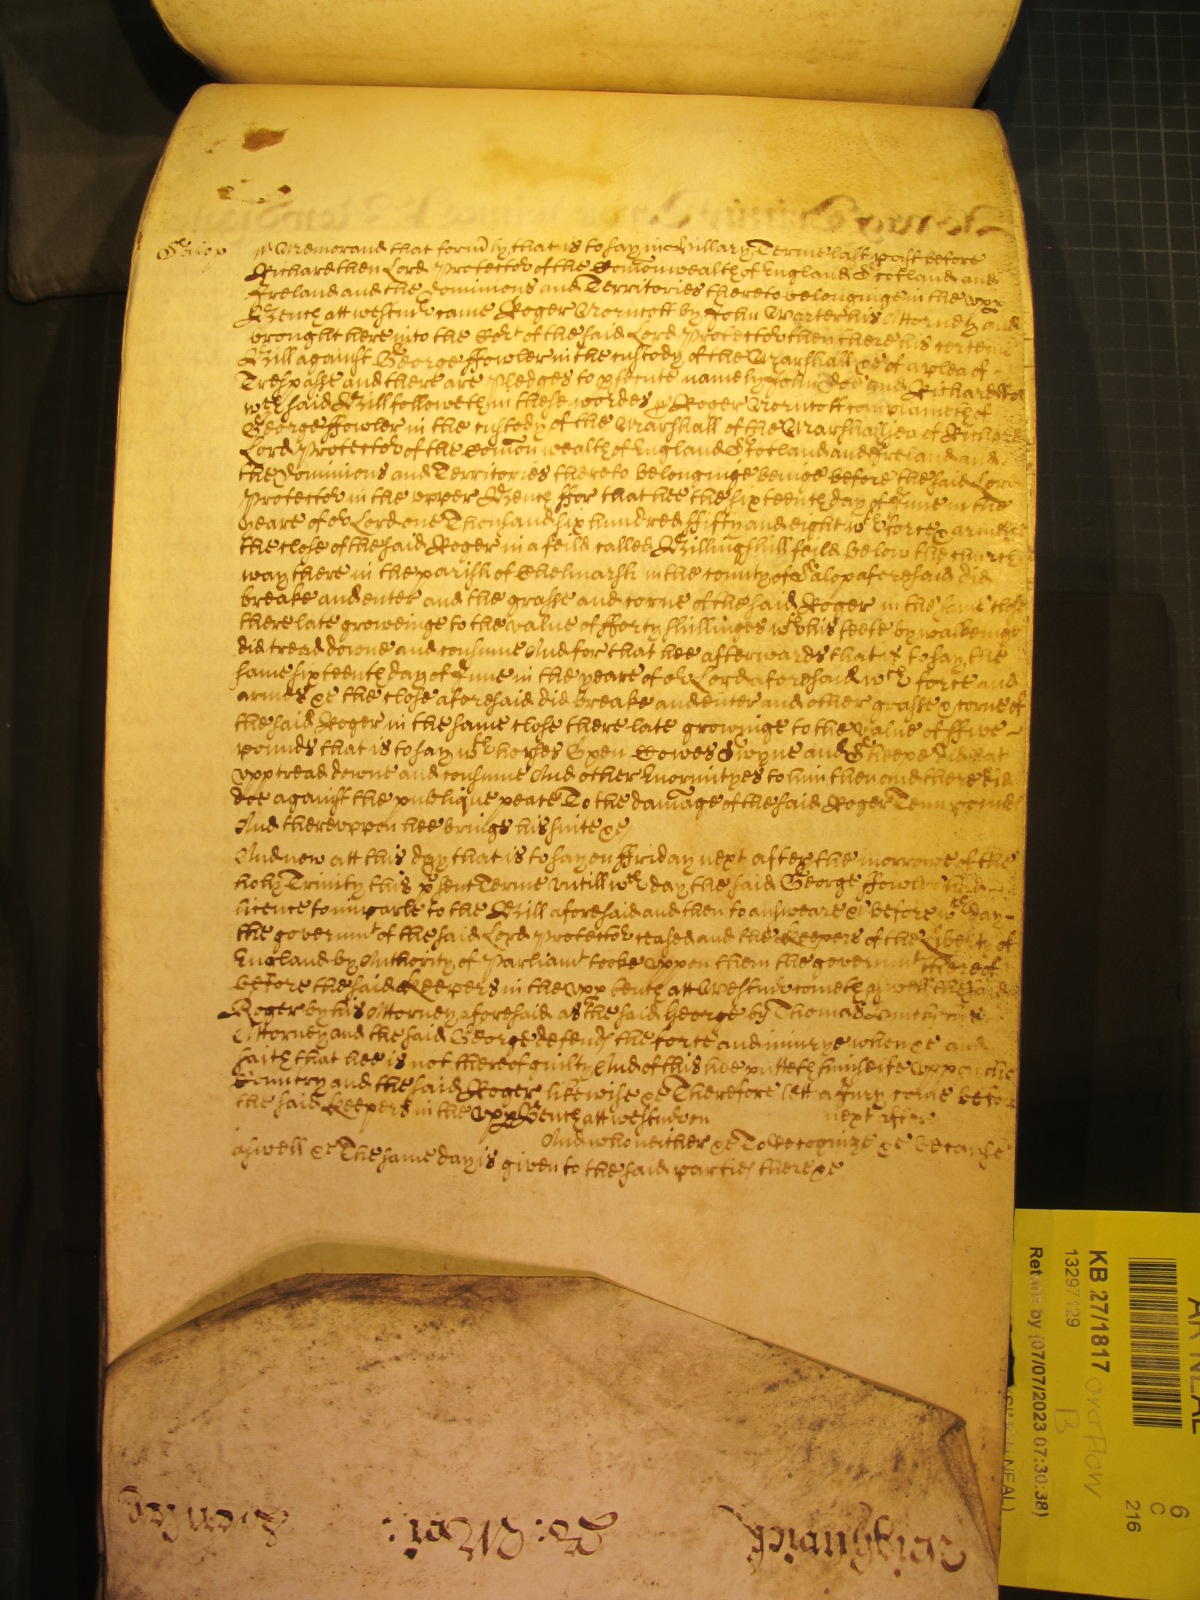 Salop
Memorand that form̄ly that is to say in Hillary Terme last past before
Richard then Lord Protector of the Com̄onwealth of England Scotland and
Ireland and the Dominions and Territories thereto belonginge in the upp
Bench att Westmr came Roger Norncott by John Warter his Attorney and
brought here into the Cort of the said Lord Protector then there his certein
Bill against George ffowler in the custody of the Marshall &c of a plea of
Trespasse and there are Pledges to p̱secute namely John Doe and Richard Roe
wch said Bill followeth in these wordes ss Roger Norncott complaineth of
George ffowler in the custody of the Marshall of the Marshallsea of Richard
Lord Protector of the Com̄on wealth of England Scotland and Ireland and
the Dominions and Territories thereto belonginge beinge before the said Lord
Protector in the upper Bench ffor that hee the sixteenth day of June in the
yeare of or Lord one Thousand six hundred ffifty and eight wth force & armes
the close of the said Roger in a feild called Billingshill feild below the church
way there in the parish of Chelmarsh in the county of Salop aforesaid did
breake and enter and the grasse and corne of the said Roger in the same close
there late groweinge to the value of fforty shillinges wth his feete by walkeinge
did tread downe and consume And for that hee afterwards that is to say the
same sixteenth day of June in the yeare of or Lord aforesaid wth force and
armes &c the close aforesaid did breake and enter and other grasse & corne of
the said Roger in the same close there late growinge to the value of ffive
pounds that is to say wth horses Oxen Cowes Swyne and Sheepe did eat
upp tread downe and consume And other Enormityes to him then and there did
doe against the publique peace To the damage of the said Roger Tenn pounds
And thereuppon hee brings his suite &c
And now att this day that is to say on ffriday next after the morrowe of the
holy Trinity this p̱sent Terme untill wch day the said George ffowler had
licence to imparle to the Bill aforesaid and then to answeare &c before wch day
the governmt of the said Lord Protector ceased and the Keepers of the Liberty of
England by Authority of Parliamt tooke uppon them the governmt thereof
before the said Keepers in the upp bench att Westmr cometh aswell the said
Roger by his Attorney aforesaid as the said George by Thomas
Attorney and the said George defends the force and iniurye when &c and
saith that hee is not thereof guilty And of this hee putteth himselfe uppon the
Country and the said Roger likewise &c Therefore lett a Jury come before
the said Keepers in the upp Bench att Westmr on next after
And who neither &c To Recognize &c because
aswell &c The same day is given to the said parties there &c
KB 27/1817 overflow
B
13297129
Return by (07/07/2023 07:30:38)
6
C
216